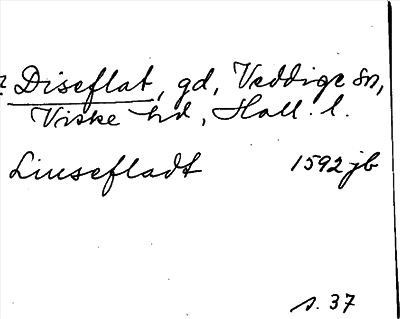 ? Diseflat, gd, Veddige sn,
Viske hd, Hall. l.
Liusefladt 1592 jb
s. 37